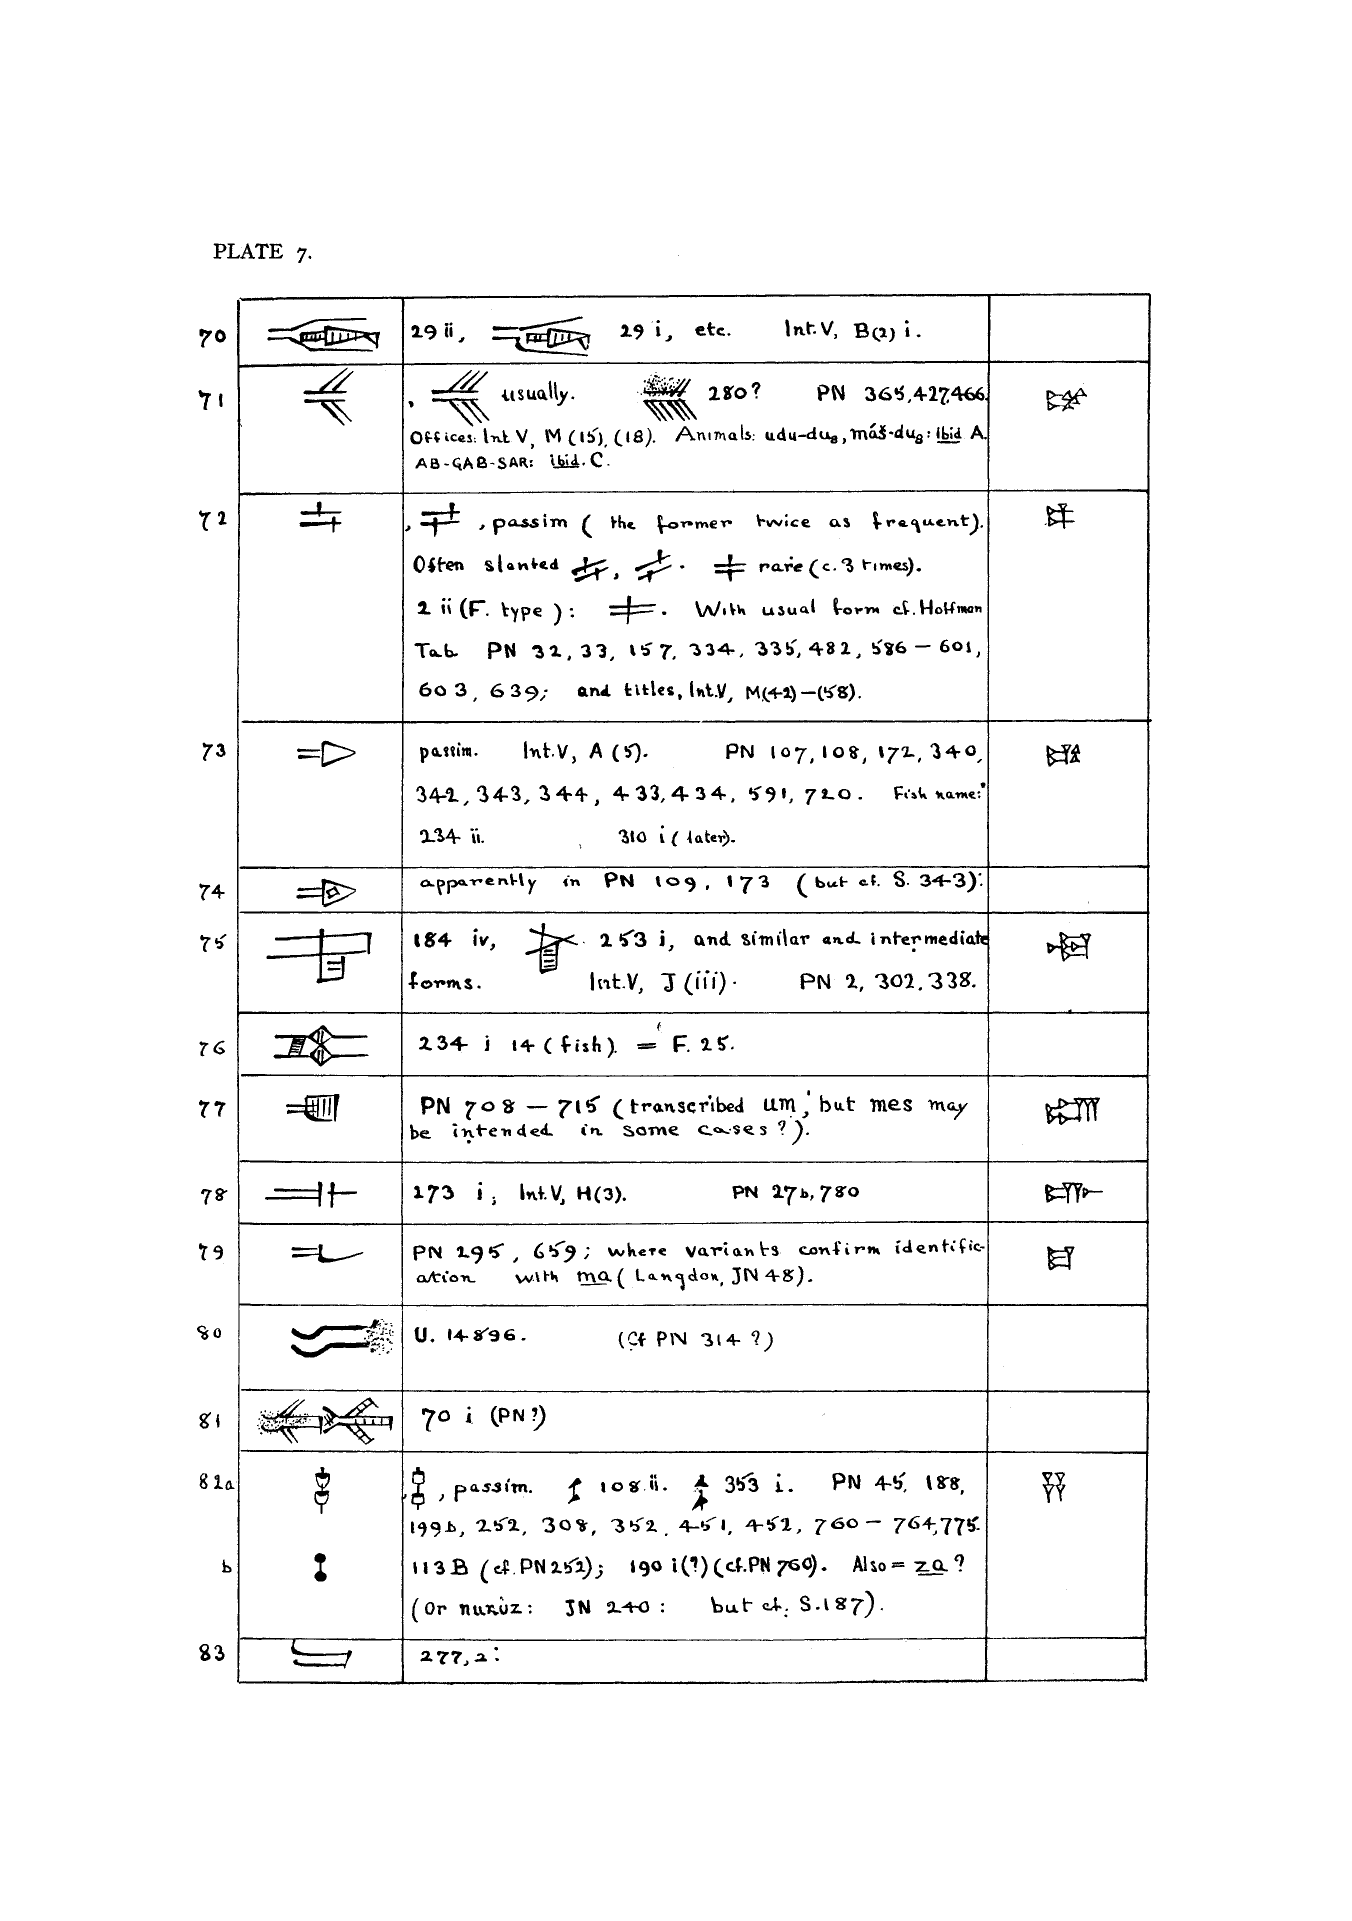 PLATE 7.
70 29 ii, 29 i, etc. Int. V, B(2) i.
71 , usually. 280? PN 365, 427, 466.
Offices: Int V, M (15), (18). Animals: udu-du₈, máš-du₈: ibid A.
AB-GAB-SAR: ibid. C.
72 , , passim ( the former twice as frequent).
Often slanted , . rare (c. 3 times).
2 ii (F. type ): . With usual form cf. Hoffman
Tab. PN 32, 33, 157, 334, 335, 482, 586 — 601,
603, 639; and titles, Int.V, M(42)—(58).
73 passim. Int.V, A (5). PN 107, 108, 172, 340,
342, 343, 344, 433, 434, 591, 720. Fish name:
234 ii. 310 i ( later).
74 apparently in PN 109, 173 (but cf. S. 343).
75 184 iv, 253 i, and similar and intermediate
forms. Int.V, J (iii). PN 2, 302, 338.
76 234 i 14 ( fish). = F. 25.
77 PN 708 — 715 (transcribed um, but mes may
be intended in some cases ?).
78 173 i; Int.V, H(3). PN 27b, 780
79 PN 295, 659; where variants confirm identific-
ation with ma ( Langdon, JN 48).
80 U. 14896. (Cf PN 314 ?)
81 70 i (PN?)
82a , , passim. 108 ii. 353 i. PN 45, 188,
199b, 252, 308, 352, 451, 452, 760 — 764, 775.
b 113 B (cf. PN 252); 190 i(?) (cf. PN 760). Also = za ?
(Or nunùz: JN 240: but cf. S. 187).
83 277, 2: